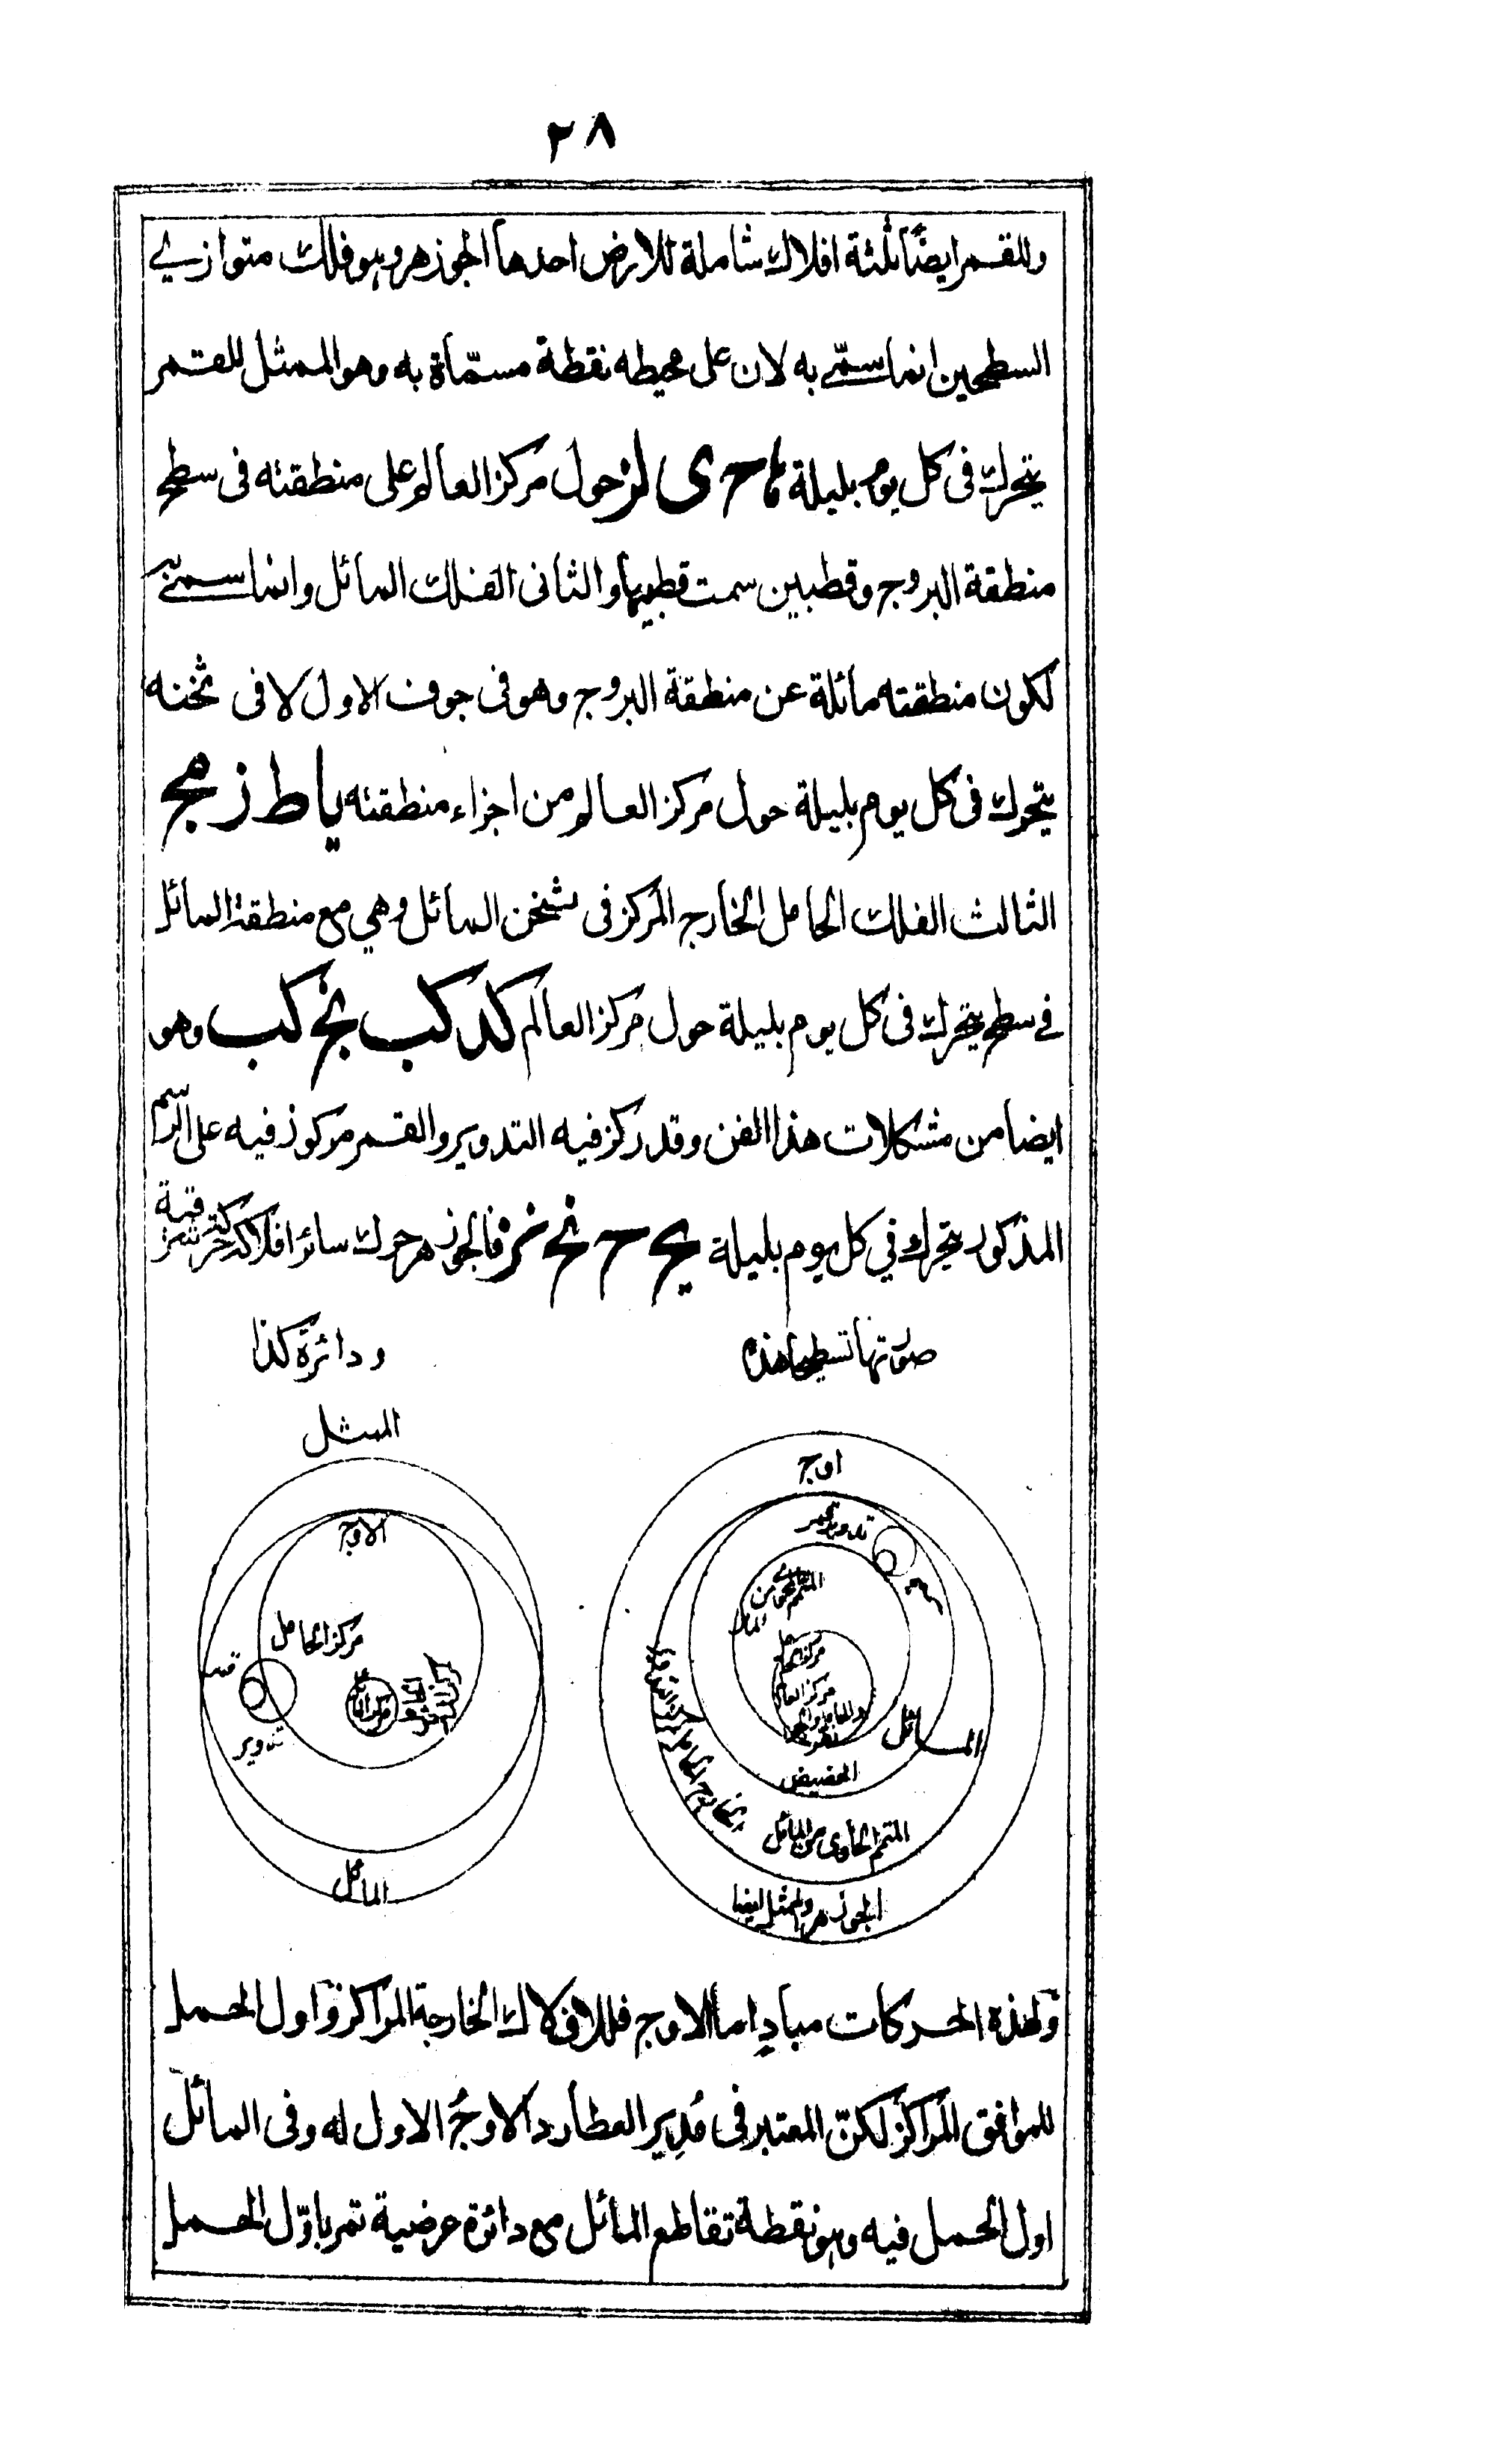 ٢٨
وللقمر ايضًا ثلثة افلاك شاملة للارض احدها الجوزهر وهو فلك متوازي
السطحين انما سمّي به لان على محيطه نقطة مسمّاة به وهو الممثل للقمر
يتحرك فى كل يوم بليلة ح ى لز حول مركز العالم على منطقته فى سطح
منطقة البروج وقطبين سمت قطبيها والثانى الفلك المائل وانما سمّي
لكون منطقته مائلة عن منطقة البروج وهو فى جوف الاول لا فى ثخنه
يتحرك فى كل يوم بليلة حول مركز العالم من اجزاء منطقته يا ط ز مج
الثالث الفلك الحامل الخارج المركز فى ثخن المائل وهي مع منطقة المائل
في سطح يتحرك فى كل يوم بليلة حول مركز العالم كد كب نج كب وهو
ايضا من مشكلات هذا الفن وقد ركز فيه التدوير والقمر مركوز فيه على الرسم
المذكور يتحرك في كل يوم بليلة يج ح نح نز فالجوزهر حرك سائر افلاكه حركة شرقية
صورتها تسطيحا هذه
ودائرة كذا
اوج
تدوير قمر
المتمم المحوى من المائل
مركز الحامل
مركز العالم
المائل
الحضيض
المتمم الحاوى من المائل
الجوزهر والممثل ايضا
الممثل
الاوج
مركز الحامل
مركز العالم
قمر
تدوير
المائل
ولهذه الحركات مبادٍ اما الاوج فللافلاك الخارجة المراكز واول الحمل
للموافق المراكز لكنّ المعتبر فى مُدير العطارد الاوجُ الاول له وفى المائل
اول الحمل فيه وهو نقطة تقاطع المائل مع دائرة عرضية تمر باوّل الحمل